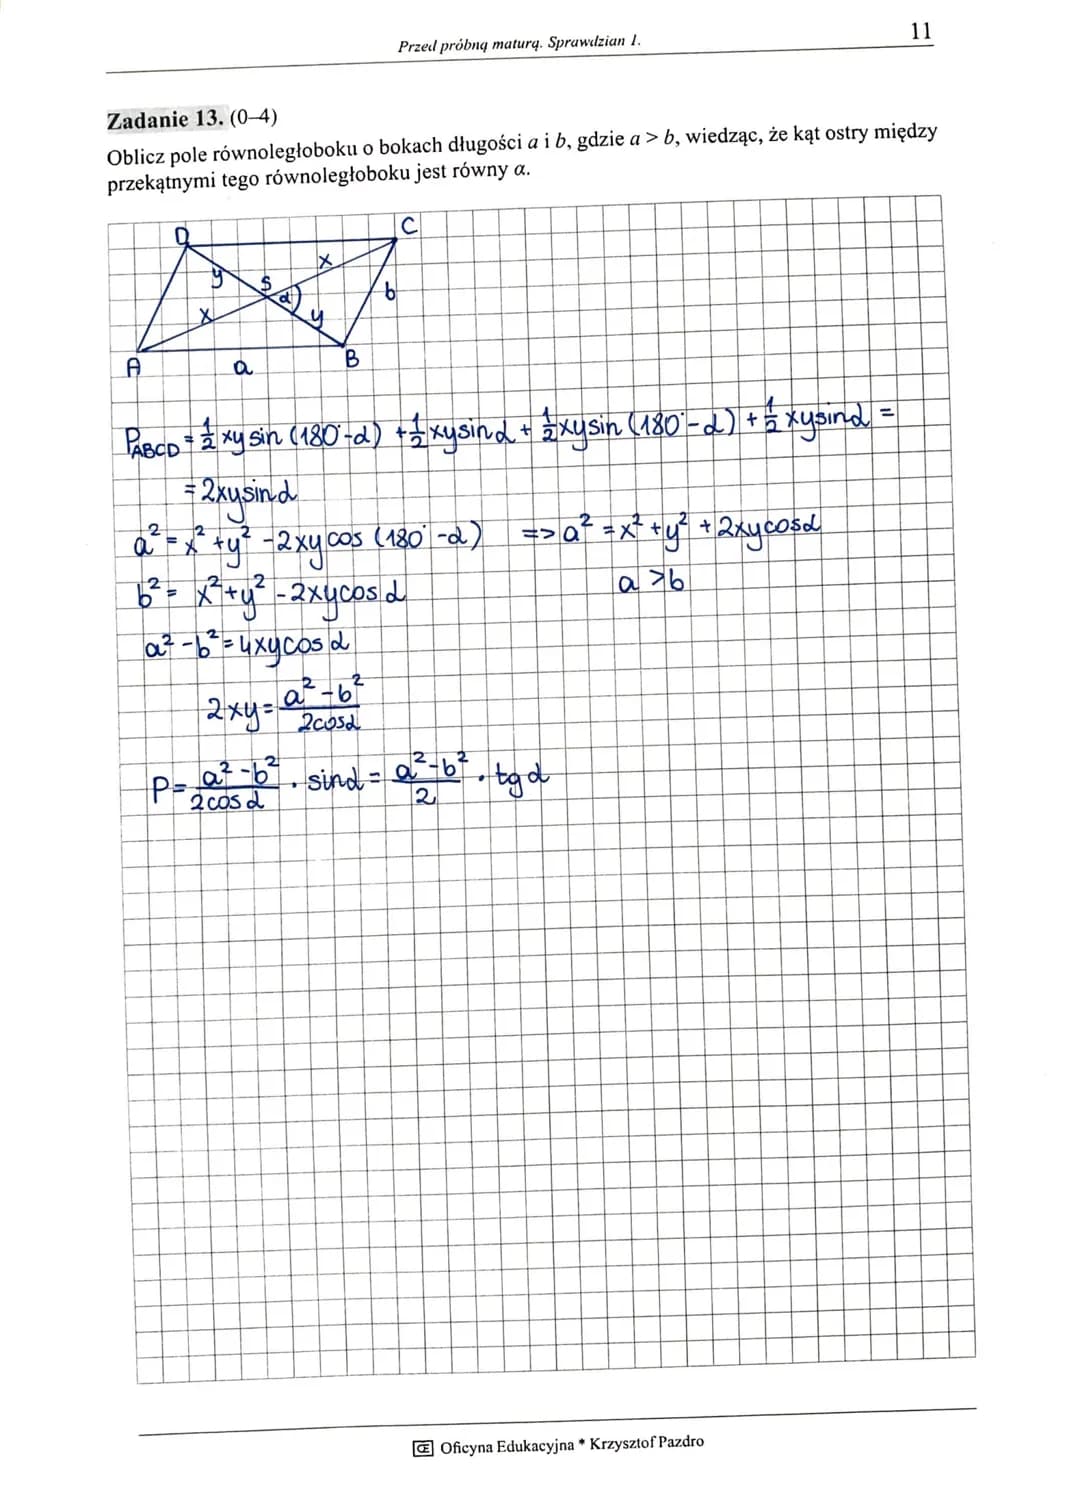 Przed próbną maturą. Sprawdzian 1.
11
Zadanie 13. (0–4)
Oblicz pole równoległoboku o bokach długości a i b, gdzie a > b, wiedząc, że kąt ostry między
przekątnymi tego równoległoboku jest równy α.
D C
y S x
x α y b
A a B
P_ABCD = 1/2 xy sin (180°-α) + 1/2 xy sin α + 1/2 xy sin (180°-α) + 1/2 xy sin α =
= 2xy sin α
a² = x² + y² - 2xy cos (180°-α) => a² = x² + y² + 2xy cos α
b² = x² + y² - 2xy cos α a > b
a² - b² = 4xy cos α
2xy = (a² - b²)/(2cos α)
P = (a² - b²)/(2cos α) · sin α = (a² - b²)/2 · tg α
Œ Oficyna Edukacyjna * Krzysztof Pazdro